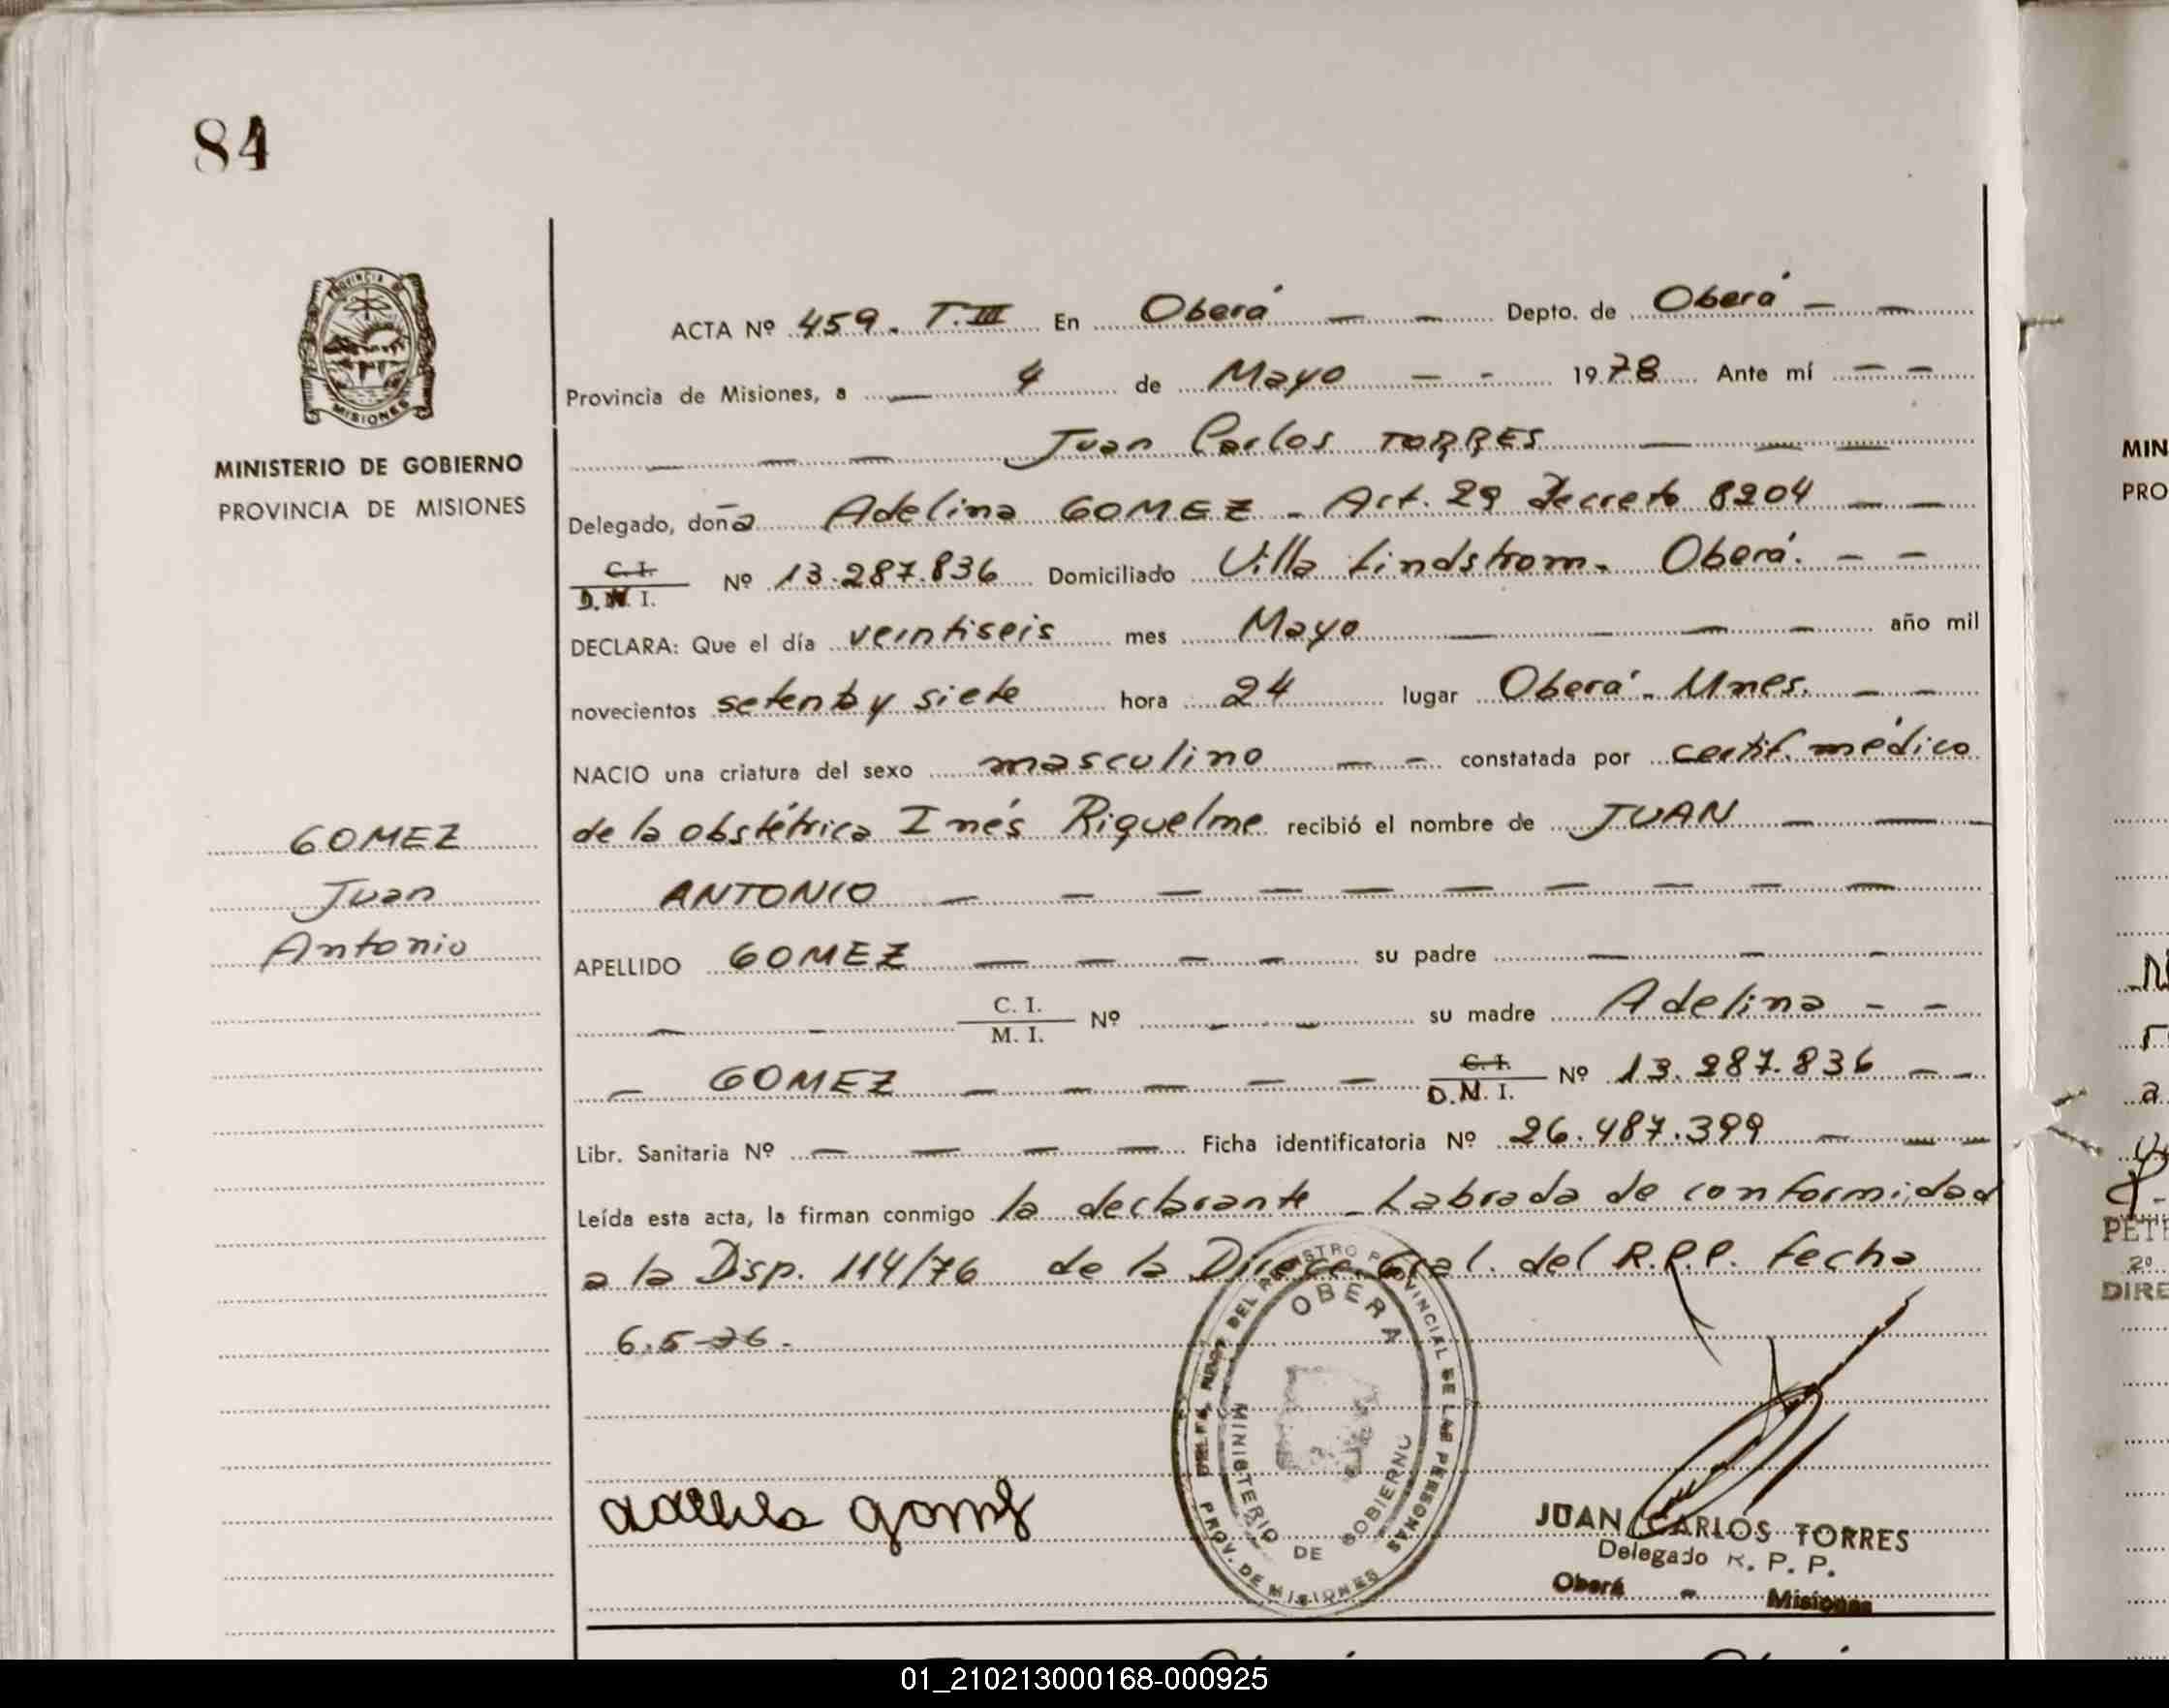 84
PROVINCIA DE
MISIONES
MINISTERIO DE GOBIERNO
PROVINCIA DE MISIONES
ACTA Nº 459. T.III En Oberá — — Depto. de Oberá — —
Provincia de Misiones, a — 4 de Mayo — - 1978 Ante mí — —
— — — Juan Carlos TORRES — — —
Delegado, doña Adelina GOMEZ - Art. 29 Decreto 8204 — —
C. I.
D. N. I. Nº 13.287.836 Domiciliado Villa Lindstrom. Oberá. — —
DECLARA: Que el día veintiseis mes Mayo — — — año mil
novecientos setenta y siete hora 24 lugar Oberá - Mnes. — —
NACIO una criatura del sexo masculino — — constatada por certif. médico
de la obstétrica Inés Riquelme recibió el nombre de JUAN — —
ANTONIO — — — — — — — — — —
APELLIDO GOMEZ — — — — su padre — — —
— — C. I.
M. I. Nº — — su madre Adelina — —
— GOMEZ — — — — — C. I.
D. N. I. Nº 13.287.836 — —
Libr. Sanitaria Nº — — — — Ficha identificatoria Nº 26.487.399 — — —
Leída esta acta, la firman conmigo la declarante - Labrada de conformidad
a la Disp. 114/76 de la Direcc. Gral. del R.P.P. fecha
6.5-76.
GOMEZ
Juan
Antonio
REGISTRO PROVINCIAL DE LAS PERSONAS
OBERA
MINISTERIO DE GOBIERNO
PROV. DE MISIONES
JUAN CARLOS TORRES
Delegado R. P. P.
Oberá - Misiones
MIN
PRO
PETE
2º
DIRE
01_210213000168-000925